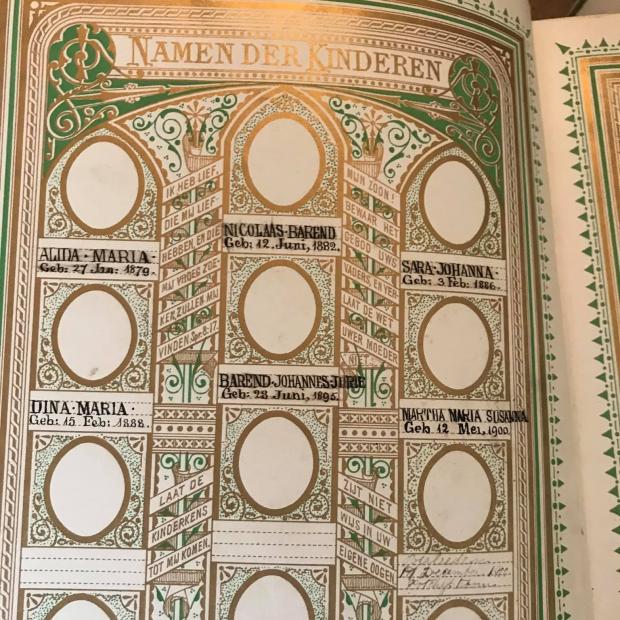 NAMEN DER KINDEREN
IK HEB LIEF,
DIE MIJ LIEF
HEBBEN, EN DIE
MIJ VROEG ZOE
KEN ZULLEN MIJ
VINDEN. Spr. 8:17.
MIJN ZOON!
BEWAAR HET
GEBOD UWS
VADERS EN VER
LAAT DE WET
UWER MOEDER
ALIDA · MARIA ·
Geb: 27 Jan: 1879.
NICOLAAS-BAREND
Geb: 12. Juni, 1882.
SARA · JOHANNA ·
Geb: 3. Feb: 1886.
DINA · MARIA ·
Geb: 15. Feb: 1888.
BAREND-JOHANNES-JURIE
Geb: 28 Juni, 1895.
MARTHA MARIA SUSANNA
Geb. 12. Mei, 1900.
LAAT DE
KINDERKENS
TOT MIJ KOMEN.
ZIJT NIET
WIJS IN UW
EIGENE OOGEN